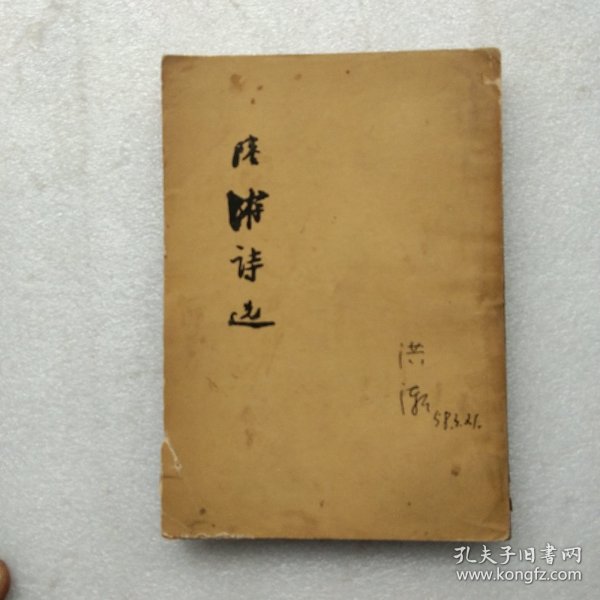 陆游诗选
洪
58.3.21.
孔夫子旧书网
www.kongfz.com